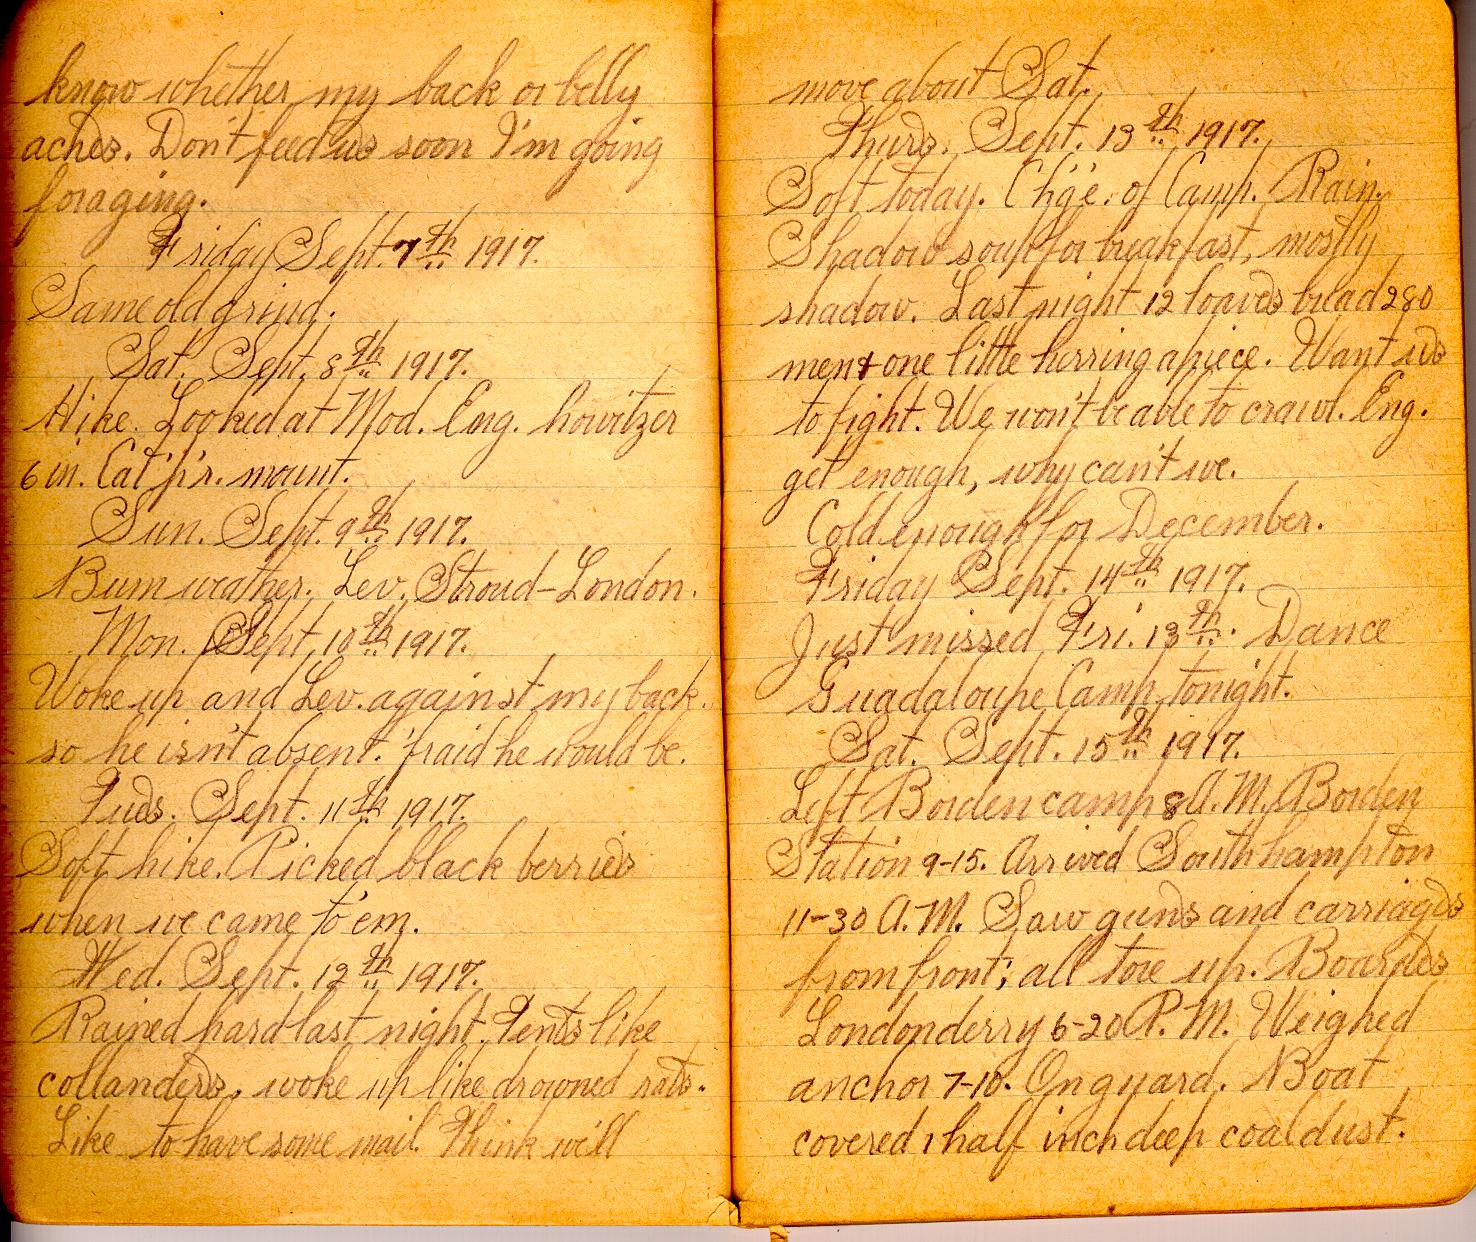 know whether my back or belly
aches. Don't feed us soon I'm going
foraging.
Friday Sept. 7th 1917.
Same old grind.
Sat. Sept. 8th 1917.
Hike. Looked at Mod. Eng. howitzer
6 in. Cat'p'r. mount.
Sun. Sept. 9th 1917.
Bum weather. Lev. Stroud-London.
Mon. Sept. 10th 1917.
Woke up and Lev. against my back.
so he isn't absent. 'fraid he would be.
Tues. Sept. 11th 1917.
Soft hike. Picked black berries
when we came to 'em.
Wed. Sept. 12th 1917.
Rained hard last night. Tents like
collanders, woke up like drowned rats.
Like to have some mail. Think we'll
move about Sat.
Thurs. Sept. 13th 1917.
Soft today. Ch'g'e. of Camp. Rain.
Shadow soup for breakfast, mostly
shadow. Last night 12 loaves bread 280
men & one little herring apiece. Want us
to fight. We won't be able to crawl. Eng.
get enough, why can't we.
Cold enough for December.
Friday Sept. 14th 1917.
Just missed Fri. 13th. Dance
Guadaloupe Camp, tonight.
Sat. Sept. 15th 1917.
Left Borden camp 8 A.M. Borden
Station 9-15. Arrived Southhampton
11-30 A.M. Saw guns and carriages
from front; all tore up. Boarded
Londonderry 6-20 P.M. Weighed
anchor 7-10. On guard. Boat
covered 1 half inch deep coal dust.